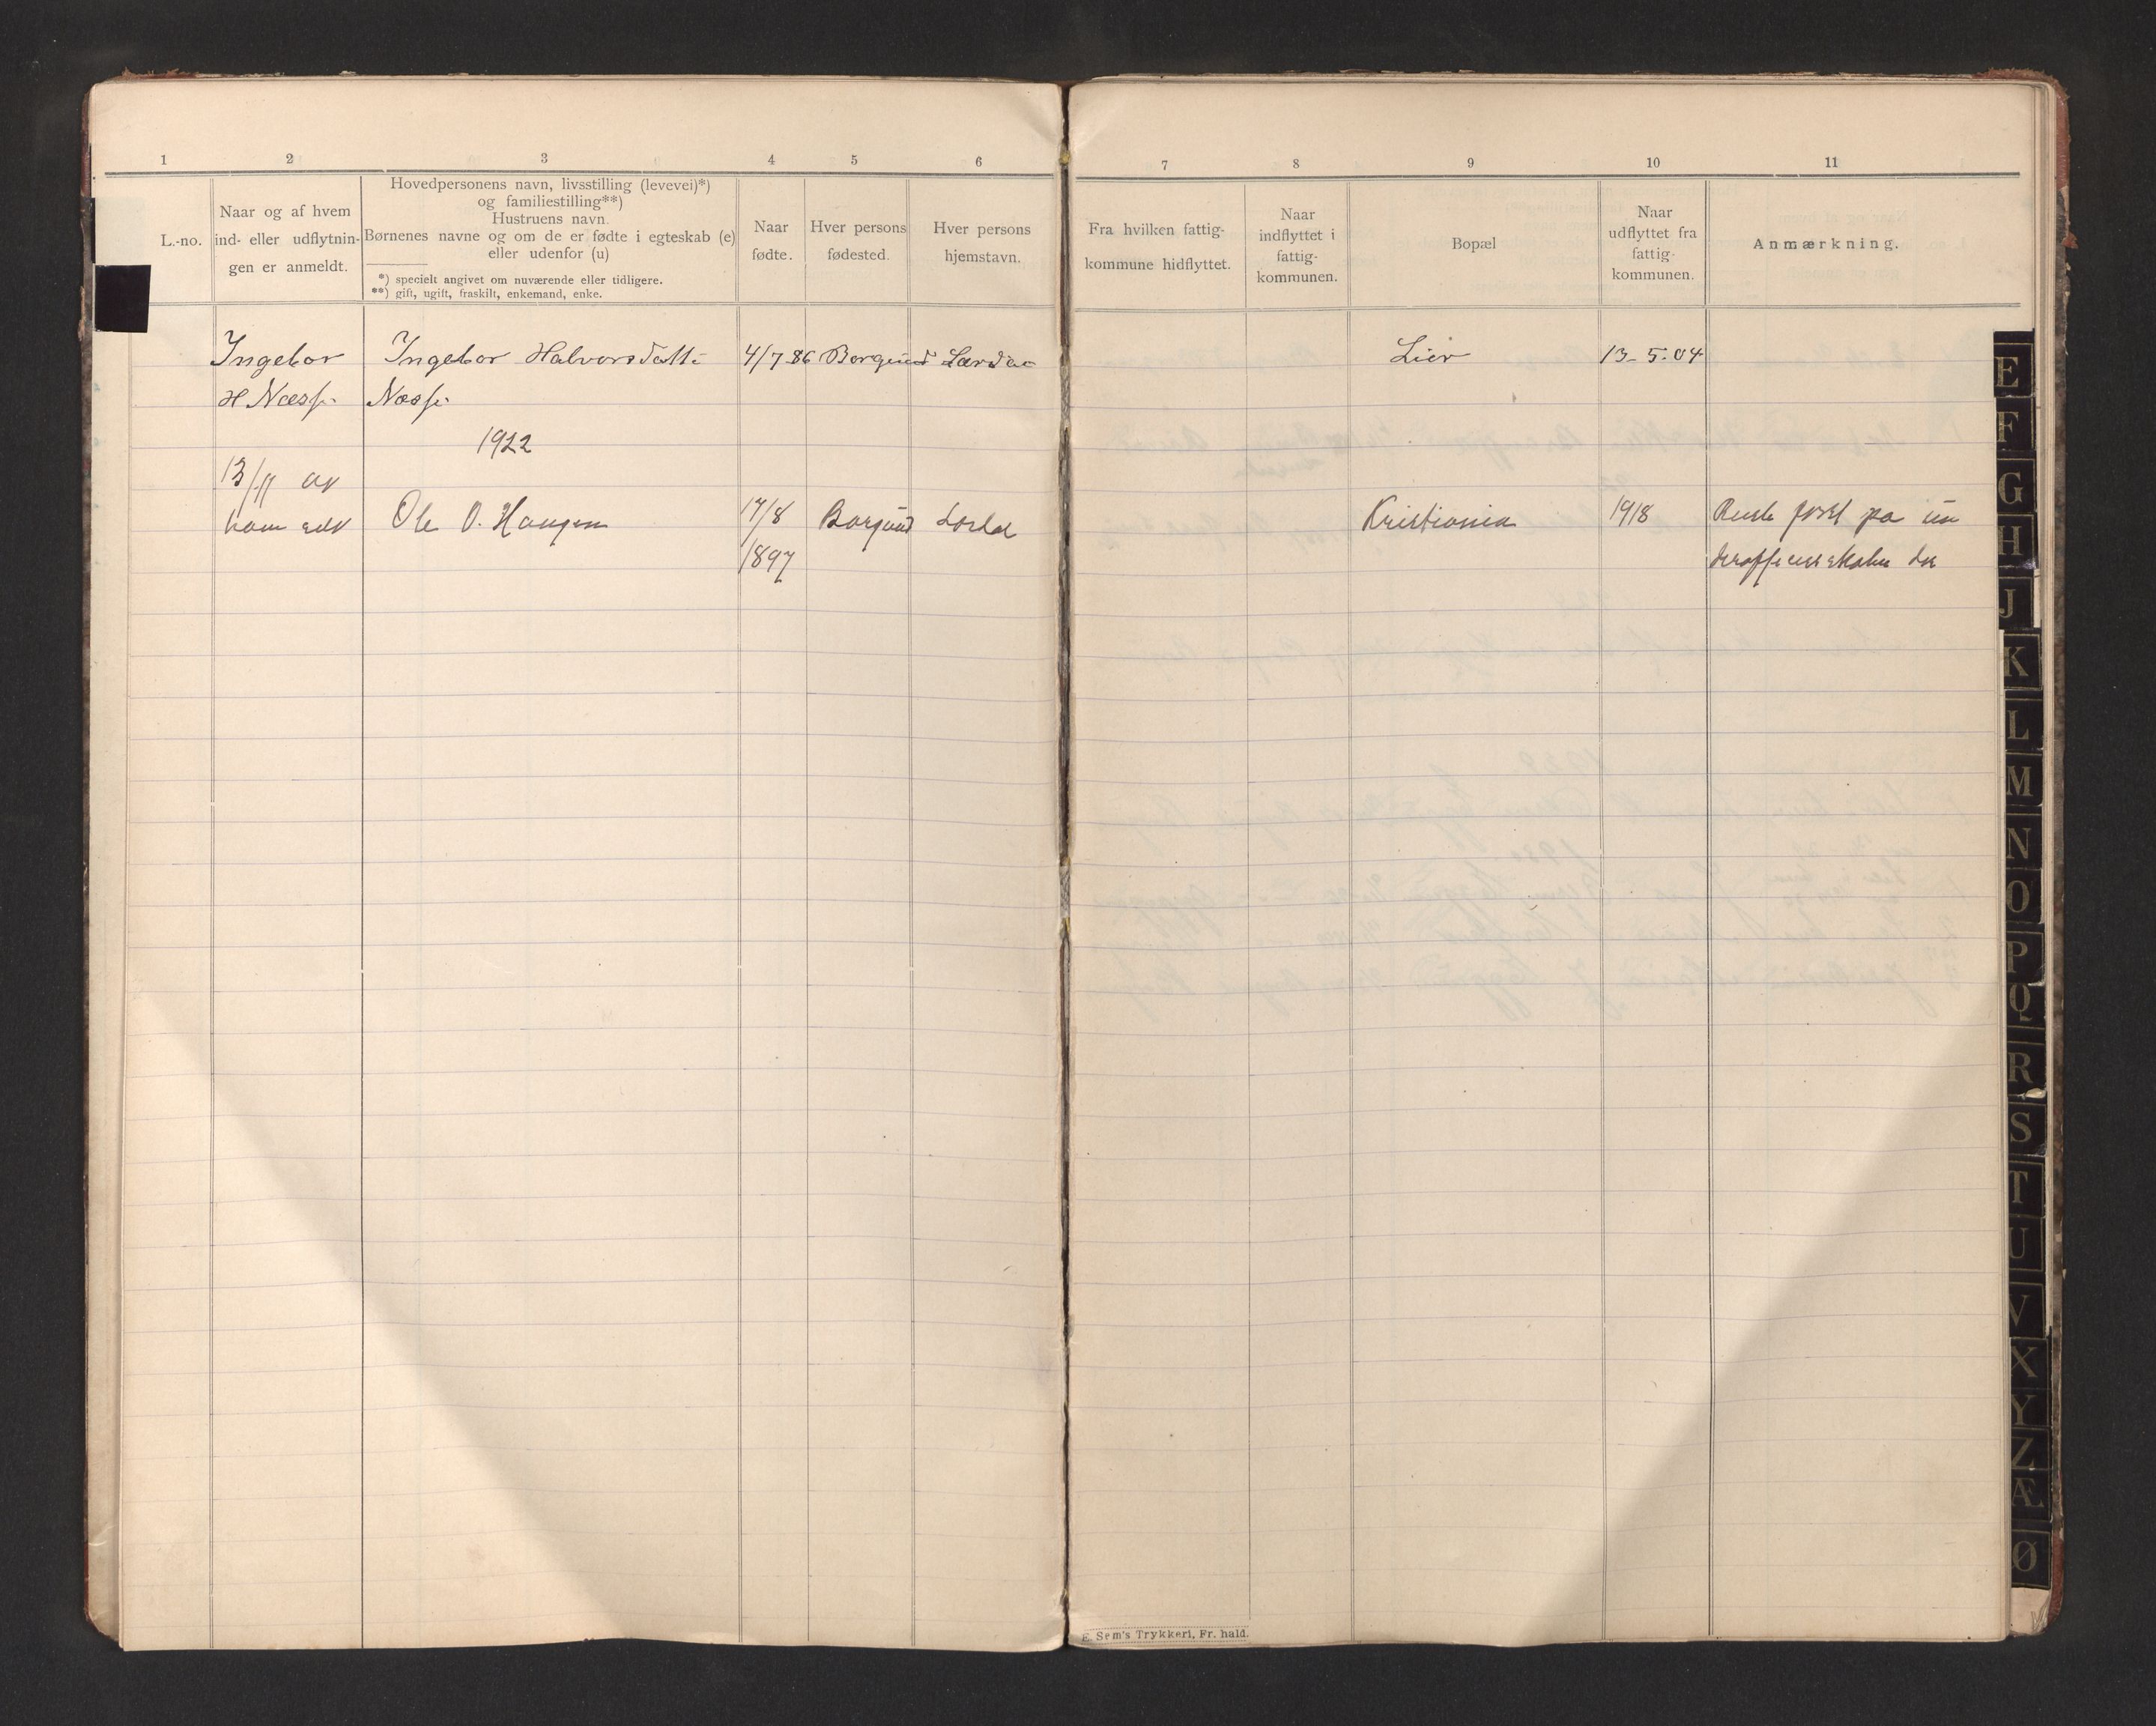 1 2 3 4 5 6 7 8 9 10 11
L.-no.
Naar og af hvem
ind- eller udflytnin-
gen er anmeldt.
Hovedpersonens navn, livsstilling (levevei)*)
og familiestilling**)
Hustruens navn.
Børnenes navne og om de er fødte i egteskab (e)
eller udenfor (u)
*) specielt angivet om nuværende eller tidligere.
**) gift, ugift, fraskilt, enkemand, enke.
Naar
fødte.
Hver persons
fødested.
Hver persons
hjemstavn.
Fra hvilken fattig-
kommune hidflyttet.
Naar
indflyttet i
fattig-
kommunen.
Bopæl
Naar
udflyttet fra
fattig-
kommunen.
Anmærkning.
Ingebor Ingebor Halvorsdatt. 4/7-86 Borgund Lærdal Lier 13-5-04
H Næss. Næss.
1922
13/11 av
ham selv Ole O. Haugen 17/8 Borgund Kristiania 1918 Reiste først på un
1897 deroffisersskolen
E
F
G
H
J
K
L
M
N
O
P
Q
R
S
T
U
V
X
Y
Z
Æ
Ø
E. Sem's Trykkeri, Fr. hald.